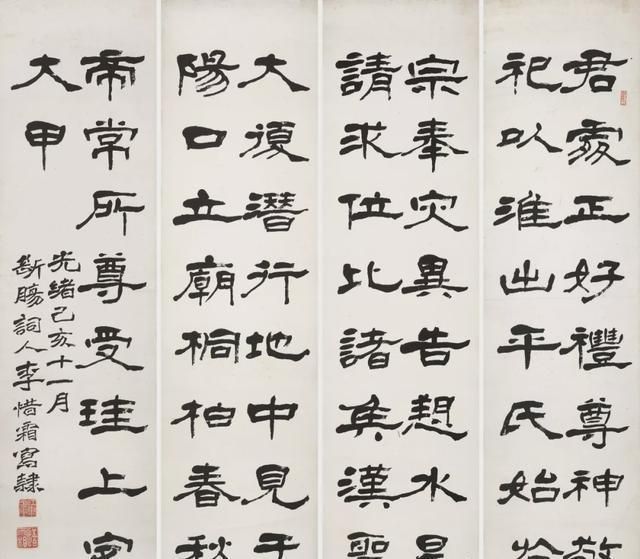 君處正好禮尊神敬
祀以淮出平氏始於
宗奉灾異告愬水旱
請求位比諸矦漢聖
大復潛行地中見于
陽口立廟桐柏春秋
帝常所尊受珪上
大甲
光緒己亥十一月
斷腸詞人李惜霜寫隸